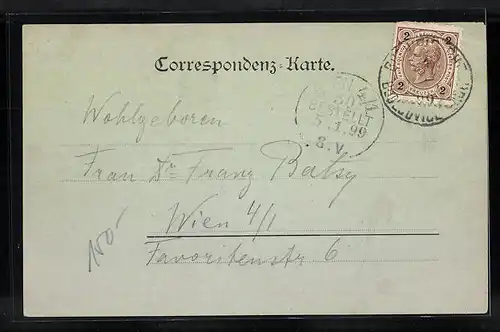 2 2
2 2
Correspondenz-Karte.
WIEN
BESTELLT
5.1.99
8.V
Wohlgeboren
Frau Dr Franz Batsy
Wien 4/1
Favoritenstr 6
150-